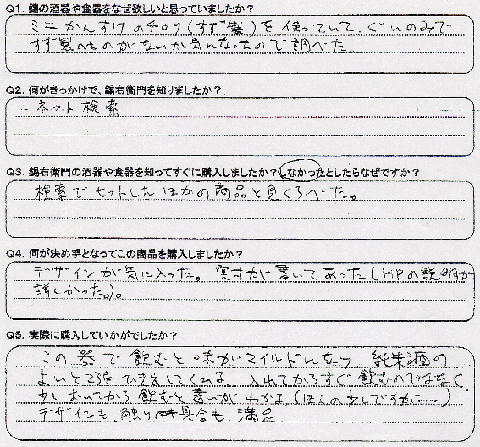 Q1. 錫の酒器や食器をなぜ欲しいと思っていましたか？
ミニかんすけのチロリ(すず製)を使っていて、ぐいのみで
すず製のものがないか気になったので調べた。
Q2. 何がきっかけで、錫右衛門を知りましたか？
ネット検索
Q3. 錫右衛門の酒器や食器を知ってすぐに購入しましたか？しなかったとしたらなぜですか？
検索でヒットしたほかの商品と見くらべた。
Q4. 何が決め手となってこの商品を購入しましたか？
デザインが気に入った。実寸が書いてあったし、HPの説明が
詳しかったから。
Q5. 実際に購入していかがでしたか？
この器で飲むと味がマイルドになり、純米酒の
よいところをひき出してくれる。入れてからすぐ飲むのではなく、
少しおいてから飲むと違いがわかる(ほんの少しですが…)
デザインも触り具合も満足